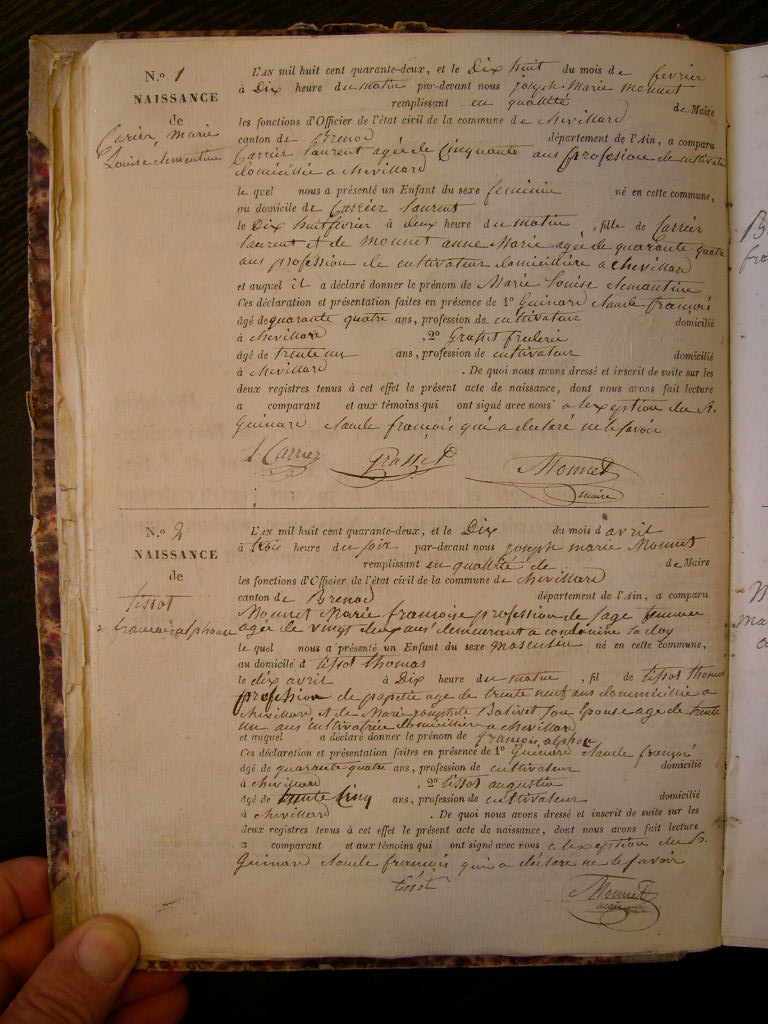 N.o 1
NAISSANCE
de
Carier, marie
Louise clementine
L'AN mil huit cent quarante-deux, et le Dix huit du mois de fevrier
à Dix heure du matin par-devant nous joseph-Marie monnet
remplissant en qualité de Maire
les fonctions d'Officier de l'état civil de la commune de chevillard
canton de Brenod département de l'Ain, a comparu
Carrier laurent agée de Cinquante ans profession de cultivateur
domicilie a chevillard
le quel nous a présenté un Enfant du sexe feminin né en cette commune,
au domicile de Carrier laurent
le Dix huit fevrier à deux heure du matin, fille de Carrier
laurent et de monnet anne Marie agée de quarante quatre
ans profession de cultivateur domicilière a chevillard
et auquel il a déclaré donner le prénom de Marie Louise clemantine
Ces déclaration et présentation faites en présence de 1o Guinard claude françois
âgé de quarante quatre ans, profession de cultivateur domicilié
à chevillard , 2o Grasset frederic
âgé de trente un ans, profession de cultivateur domicilié
à chevillard . De quoi nous avons dressé et inscrit de suite sur les
deux registres tenus à cet effet le présent acte de naissance, dont nous avons fait lecture
a comparant et aux témoins qui ont signé avec nous a lexeption du Sr.
Guinard claude françois qui a déclaré ne le savoir
L Carrier Grasset Monnet
maire
N.o 2
NAISSANCE
de
tissot
francois alphonse
L'AN mil huit cent quarante-deux, et le Dix du mois d avril
à trois heure du soir par-devant nous joseph marie Monnet
remplissant en qualité de de Maire
les fonctions d'Officier de l'état civil de la commune de chevillard
canton de Brenod département de l'Ain, a comparu
Monnet Marie françoise profession de sage femme
agée de vingt deux ans demeurant a condamine la doy
le quel nous a présenté un Enfant du sexe masculin né en cette commune,
au domicile d tissot thomas
le dix avril à Dix heure du matin , fil de tissot thomas
profession de age de trente neuf ans dommicilie a
chevillard et de Marie josephte son epouse age de trente
un ans cultivatrice domicilière a chevillard
et auquel a déclaré donner le prénom de françois alphonse
Ces déclaration et présentation faites en présence de 1o Guinard claude françois
âgé de quarante quatre ans, profession de cultivateur domicilié
à chevillard , 2o tissot augustin
âgé de trente Cinq ans, profession de cultivateur domicilié
à chevillard . De quoi nous avons dressé et inscrit de suite sur les
deux registres tenus à cet effet le présent acte de naissance, dont nous avons fait lecture
a comparant et aux témoins qui ont signé avec nous a lexeption du Sr.
Guinard claude françois qui a déclaré ne le savoir
tissot Monnet